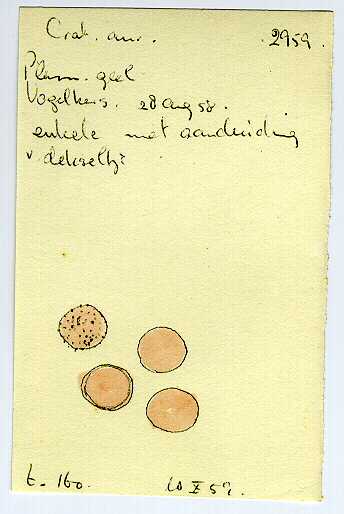 Crat. aur. 2959.
Plasm. geel
Vogelkers. 28 aug 58.
enkele met aanduiding
v dekseltje
t. 160. 10 X 59.